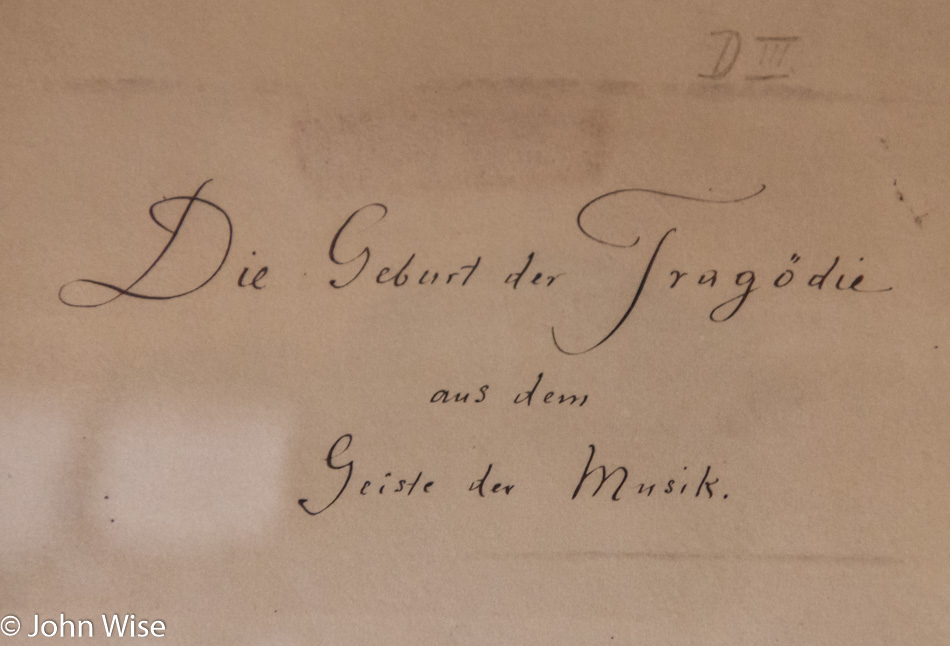 D III
Die Geburt der Tragödie
aus dem
Geiste der Musik.
© John Wise